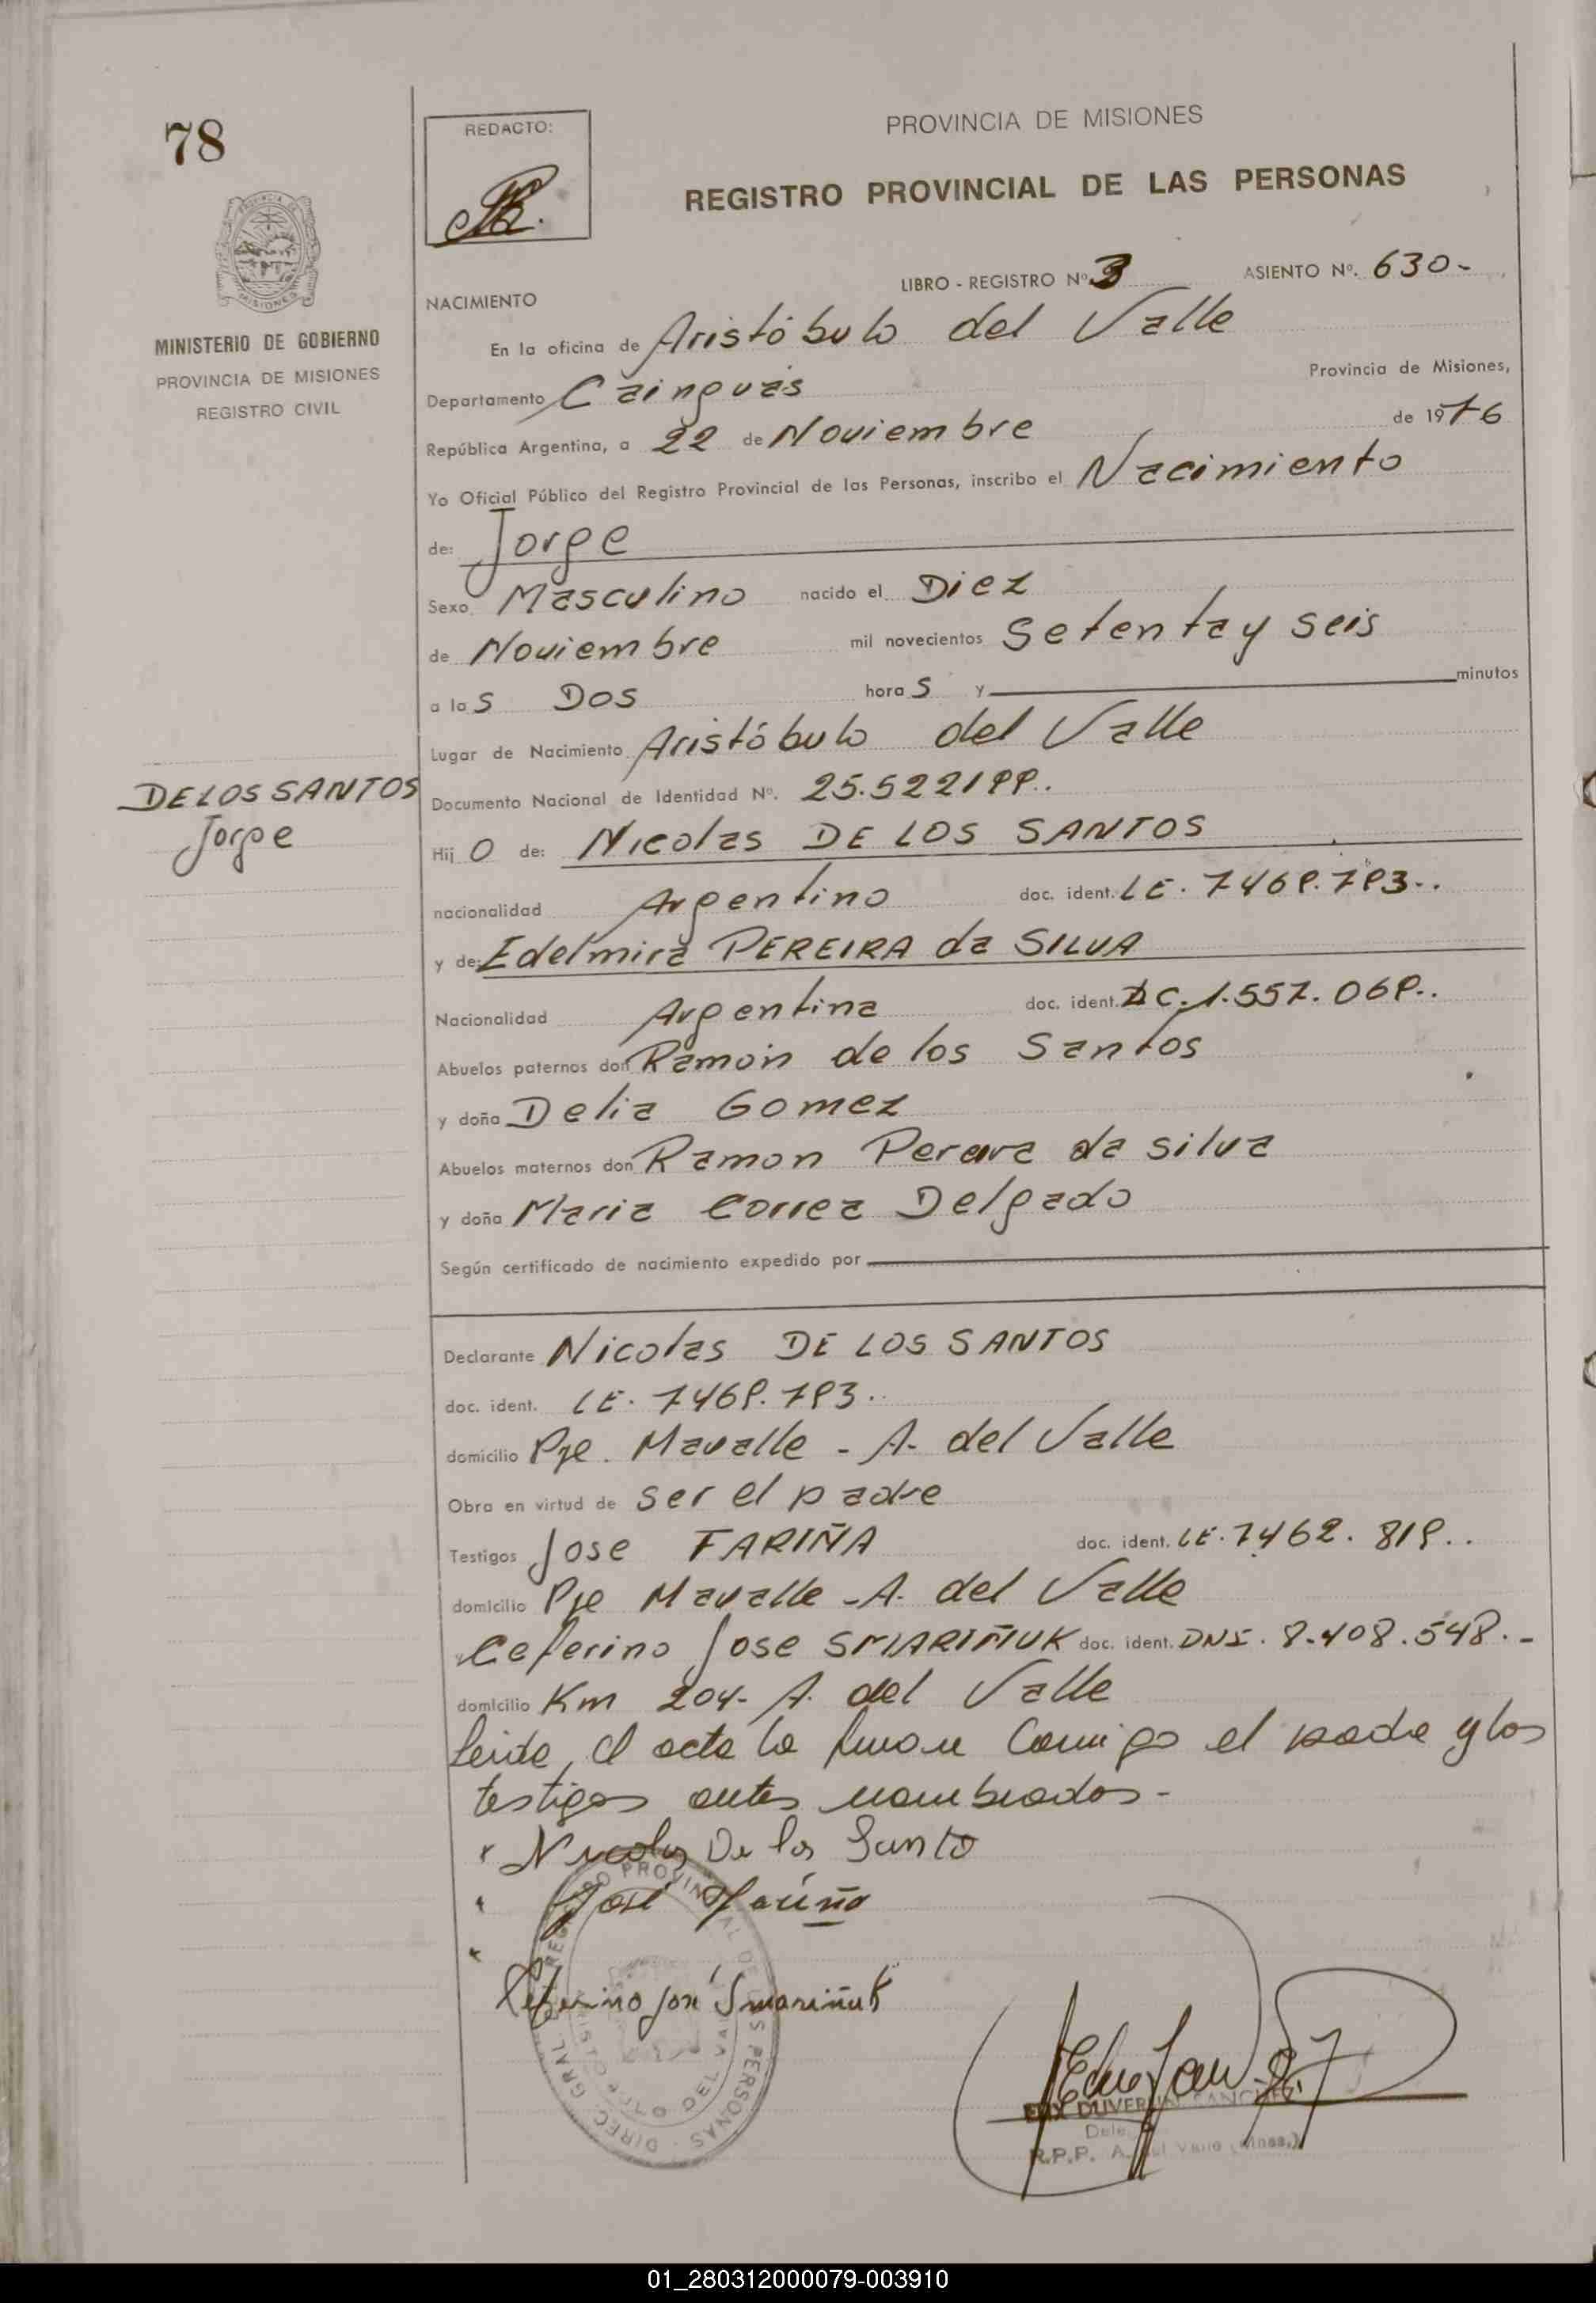 78
REDACTO:
PROVINCIA DE MISIONES
REGISTRO PROVINCIAL DE LAS PERSONAS
LIBRO - REGISTRO Nº 3 ASIENTO Nº. 630-
NACIMIENTO
MINISTERIO DE GOBIERNO
PROVINCIA DE MISIONES
REGISTRO CIVIL
En la oficina de Aristóbulo del Valle
Departamento Cainguás Provincia de Misiones,
República Argentina, a 22 de Noviembre de 1976
Yo Oficial Público del Registro Provincial de las Personas, inscribo el Nacimiento
de: Jorge
Sexo Masculino nacido el Diez
de Noviembre mil novecientos Setenta y seis
a las Dos horas y minutos
Lugar de Nacimiento Aristóbulo del Valle
DE LOS SANTOS
Jorge
Documento Nacional de Identidad Nº. 25.522199..
Hijo de: Nicolas DE LOS SANTOS
nacionalidad Argentino doc. ident. LE. 7469.793..
y de: Edelmira PEREIRA da SILVA
Nacionalidad Argentina doc. ident. C. 1.557.069..
Abuelos paternos don Ramón de los Santos
y doña Delia Gomez
Abuelos maternos don Ramon Pereira da silva
y doña Maria Correa Delgado
Según certificado de nacimiento expedido por
Declarante Nicolas DE LOS SANTOS
doc. ident. LE. 7469.793..
domicilio Pje. Mavalle - A. del Valle
Obra en virtud de ser el padre
Testigos Jose FARIÑA doc. ident. LE. 7462.819..
domicilio Pje Mavalle - A. del Valle
y Ceferino Jose SMARIÑUK doc. ident. DNI. 8.408.548.-
domicilio Km 204- A. del Valle
Leida el acta la firman conmigo el padre y los
testigos antes nombrados-
Nicolas De los Santo
José Fariña
Ceferino José Smariñuk
REGISTRO PROVINCIAL DE LAS PERSONAS - DIREC. GRAL.
DEL VALLE
R.P.P. A. del Valle (Mnes.)
01_280312000079-003910